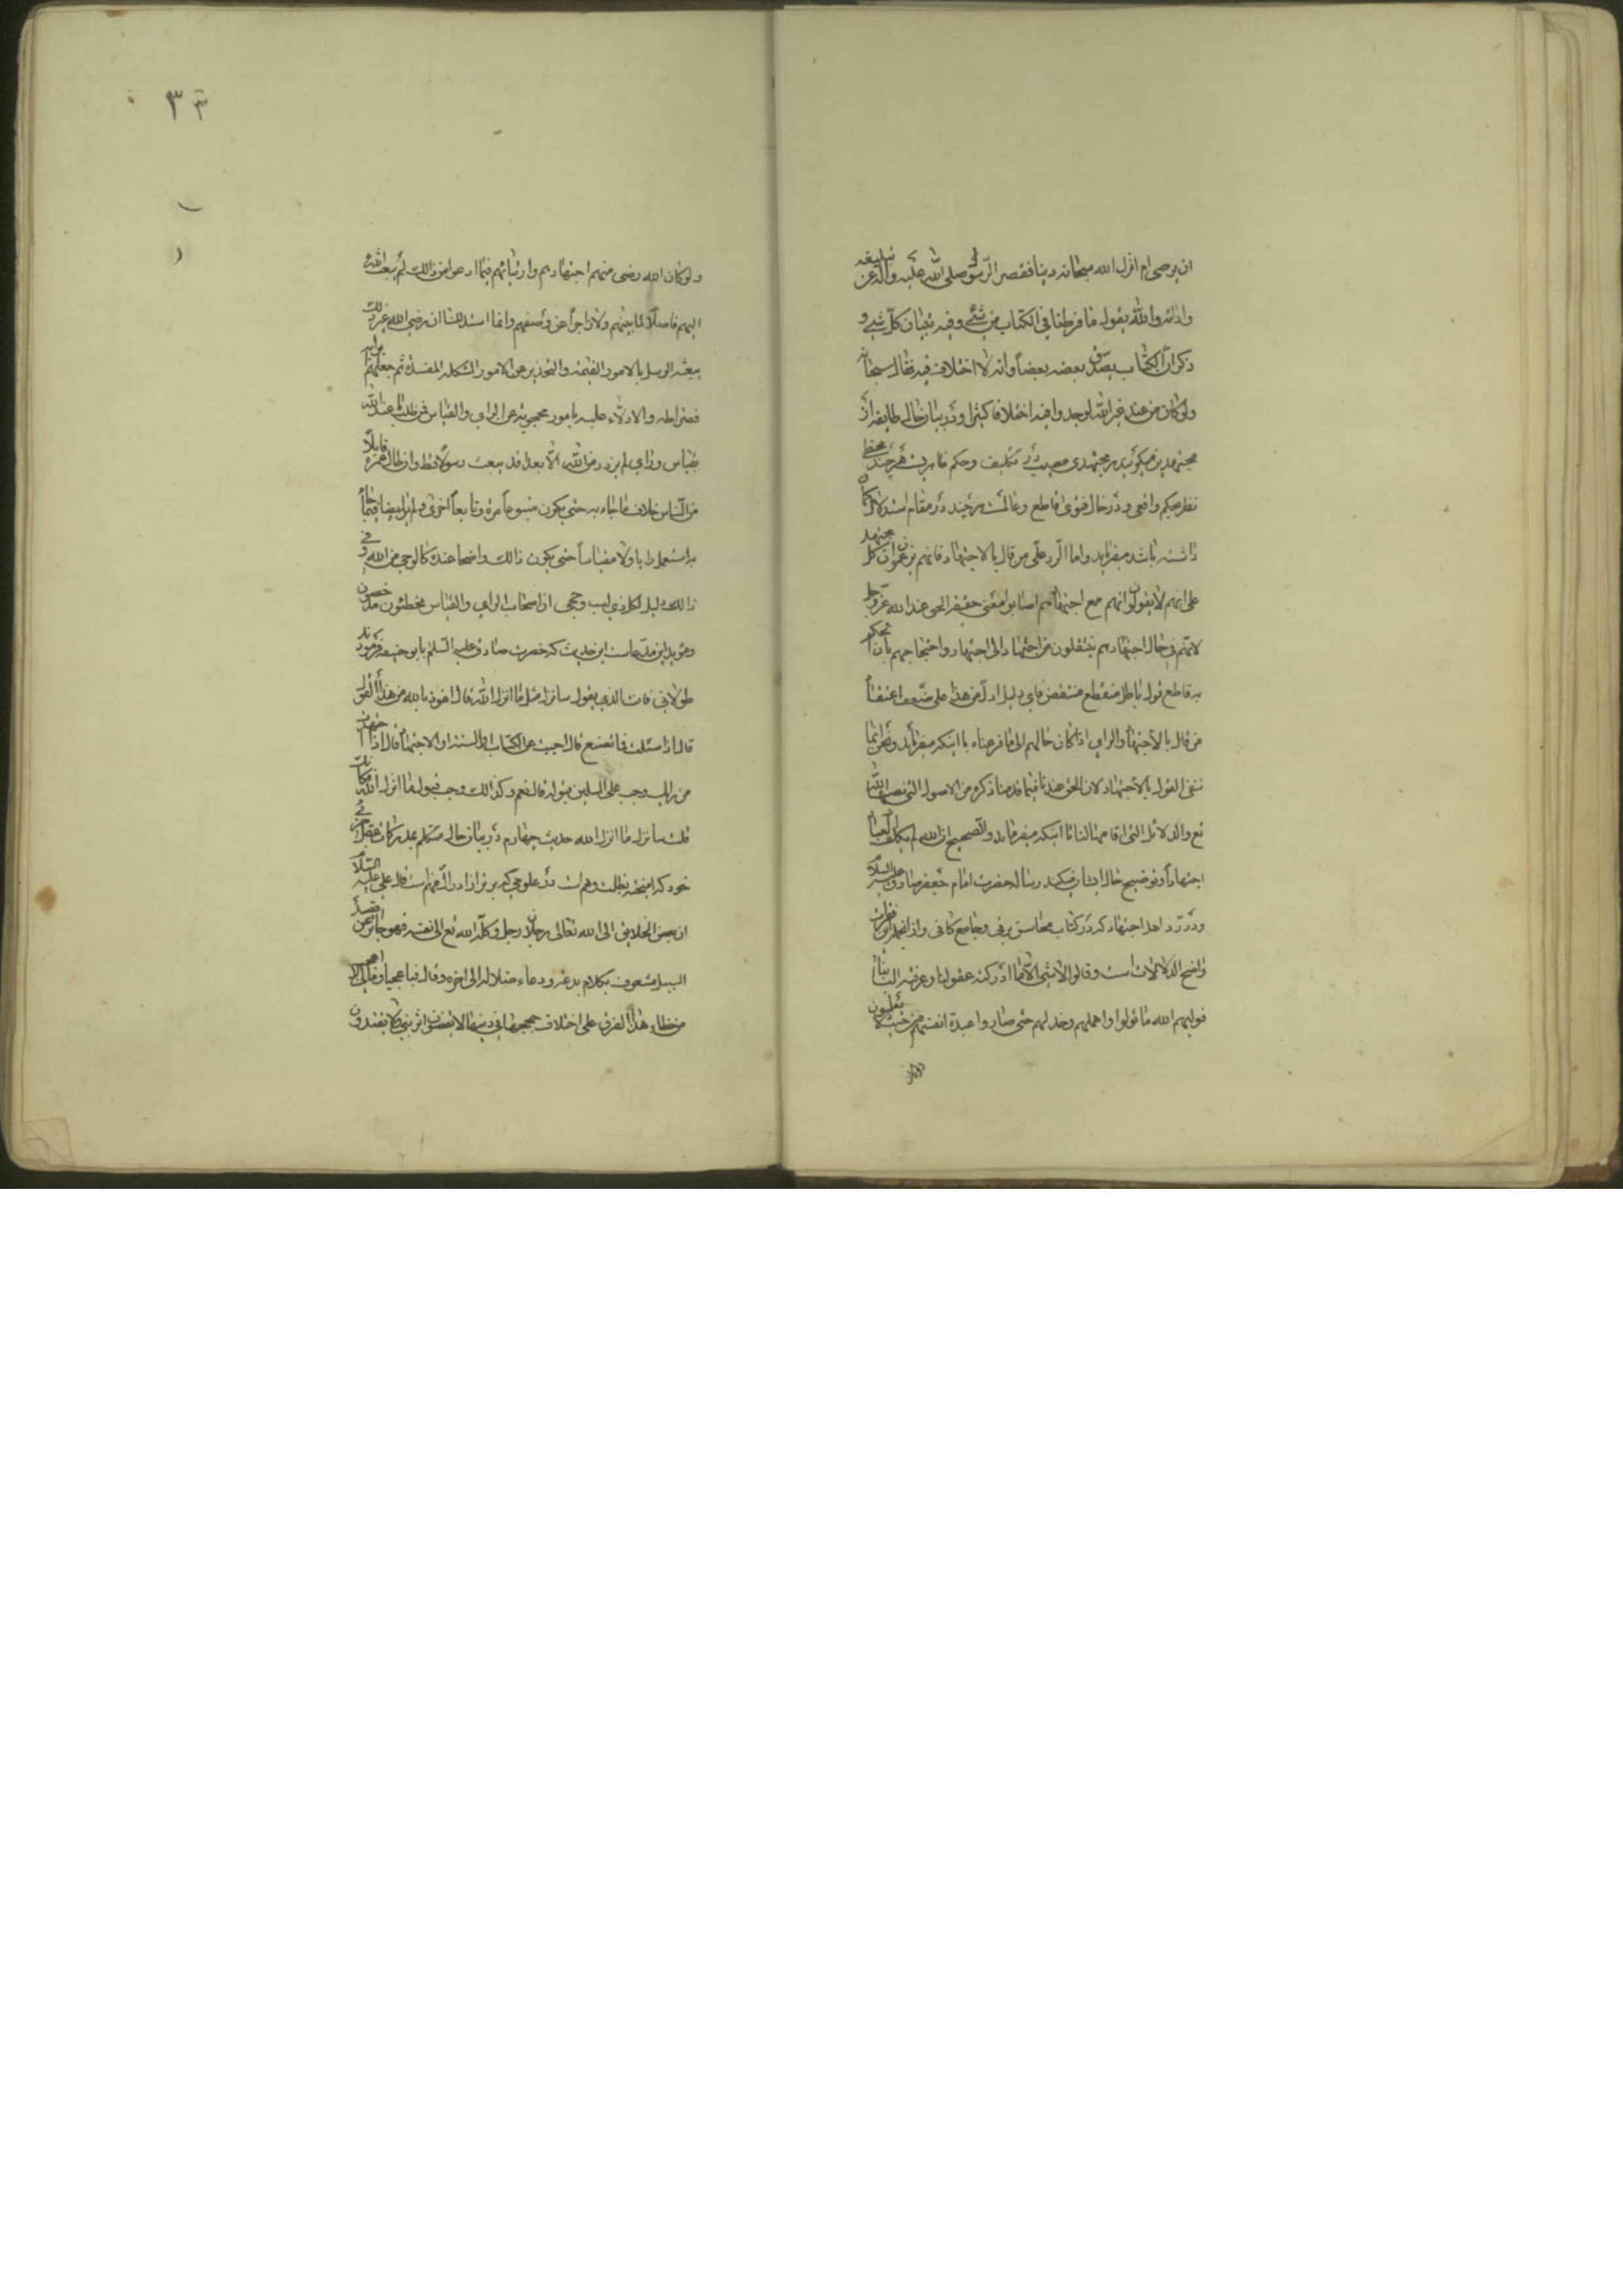 ان يرضى ام انزل الله سبحانه دينا فقصر الرسول صلى الله عليه وآله عن تبليغه
وادائه والله يقول ما فرطنا في الكتاب من شئ وفيه تبيان كل شئ و
ذكر ان الكتاب يصدق بعضه بعضاً وانه لا اختلاف فيه فقال سبحانه
ولو كان من عند غير الله لوجدوا فيه اختلافا كثيرا ودر بيان حال طايفه از
مجتهدين ميكويند هر مجتهدى مصيب در تكليف وحكم هر چند مخطى
نظر بحكم واقعى ودر حال فتوى قاطع هر چند در مقام استدلال
داشته باشد ميفرمايد واما الرد على من قال بالاجتهاد فانهم يزعمون ان كل مجتهد
على انهم لا يقولون انهم مع اجتهادهم اصابوا معنى حقيقة الحق عند الله عز وجل
لانهم في حال اجتهادهم ينتقلون من اجتهاد الى اجتهاد واحتجاجهم بان الحكم
به قاطع قول باطل منقطع منتقض فاي دليل ادل من هذا على ضعف اعتقاد
من قال بالاجتهاد والراى اذا كان حالهم الى ما فرضناه تا اينكه ميفرمايد ونحن انما
ننفى القول بالاجتهاد لان الحق عندنا فيما قدمنا ذكره من الاصول التى نصبها الله
تع والدلائل التى اقامها لنا تا اينكه ميفرمايد والصحيح ان الله لم يكلف العباد
اجتهاداً وتوضيح حال ايشان ميكند رساله حضرت امام جعفر صادق عليه السلام
ودر رد اهل اجتهاد كه در كتاب محاسن برقى وجامع كافى
واضح الدلالات است وقالوا لا شئ الا ما ادركته عقولنا وعرفته البابنا
فوليهم الله ما تولوا واهملهم وخذلهم حتى صاروا عبدة انفسهم من حيث لا يعلمون
ولو كان
ولو كان الله رضى منهم اجتهادهم وارتيائهم فيما ادعوا من ذالك لم يبعث الله
اليهم فاصلاً لما بينهم ولا زاجراً عن وصفهم وانما استدللنا ان رضى الله غير ذلك
ببعثه الرسل بالامور القيمة والتحذير عن الامور المشكله المفسدة ثم جعلهم ابوابه
وصراطه والادلاء عليه بامور محجوبة عن الراى والقياس فمن طلب ما عند الله
بقياس وراى لم يزدد من الله الا بعدا ولم يبعث رسولا قط وان طال عمره قابلاً
من الناس خلاف ما جاء به حتى يكون متبوعاً مرة وتابعاً اخرى ولم ير ايضا فيما جاء
به استعمل رايا ولا مقياساً حتى يكون ذالك واضحا عنده كالوحى من الله وفى
ذالك دليل لكل ذى لب وحجى ان اصحاب الراى والقياس مخطئون مدحضون
ومؤيد اين مدعاست اين حديث كه حضرت صادق عليه السلم بابو حنيفه فرمودند
قال اذا سئلت فما تصنع قال اجيب عن الكتاب او السنة او الاجتهاد قال اذا اجتهدت
من رايك وجب على المسلمين قبوله قال نعم وكذالك وجب قبول ما انزل الله فكانك
قلت سانزل ما انزل الله حديث چهارم در بيان حال متكلم
ان ابغض الخلايق الى الله تعالى رجلان رجل وكله الله تع الى نفسه فهو جائر عن قصد
السبيل مشعوف بكلام بدعة ودعاء ضلالة الى اخره وقال فيا عجبا ومالى لا اعجب
من خطاء هذه الفرق على اختلاف حججها في دينها لا يقتصون اثر نبى ولا يقتدون